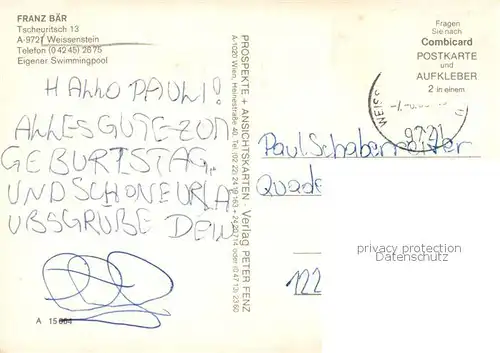 FRANZ BÄR
Tscheuritsch 13
A-9721 Weissenstein
Telefon (0 42 45) 26 75
Eigener Swimmingpool
HALLO PAULI!
ALLES GUTE ZUM
GEBURTSTAG.
UND SCHÖNE URLA
UBSGRÜßE DEIN
A 15 664
PROSPEKTE + ANSICHTSKARTEN · Verlag PETER FENZ
A-1020 Wien, Heinestraße 40, Tel. (02 22)
Fragen
Sie nach
Combicard
POSTKARTE
und
AUFKLEBER
2 in einem
WEISS
9721
Paul Schabermeister
Quade
122
privacy protection
Datenschutz